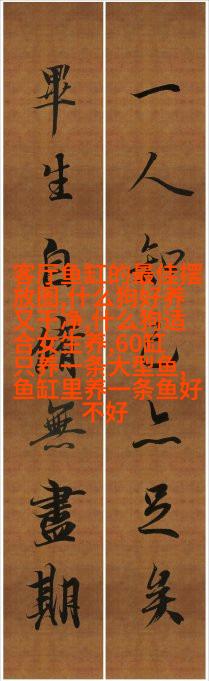 一人知己亦足矣
畢生自脩無盡期
客厅鱼缸的最佳摆
放图,什么狗好养
又干净,什么狗适
合女生养,60缸
只养一条大型鱼,
鱼缸里养一条鱼好
不好